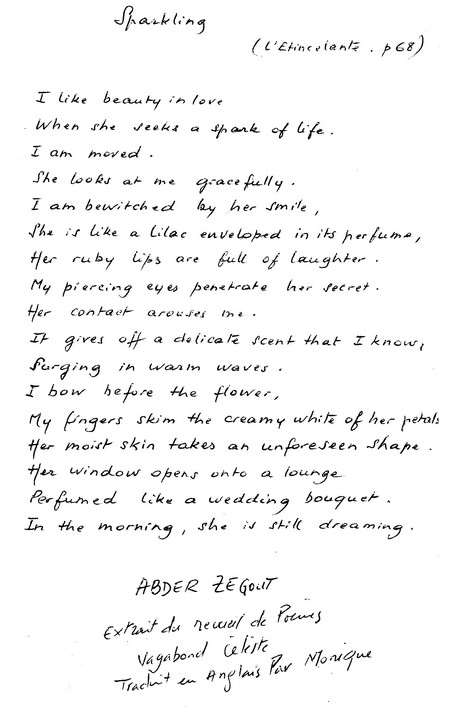 Sparkling
(L'Etincelante. p68)
I like beauty in love
When she seeks a spark of life.
I am moved.
She looks at me gracefully.
I am bewitched by her smile,
She is like a lilac enveloped in its perfume,
Her ruby lips are full of laughter.
My piercing eyes penetrate her secret.
Her contact arouses me.
It gives off a delicate scent that I know,
Surging in warm waves.
I bow before the flower,
My fingers skim the creamy white of her petals
Her moist skin takes an unforeseen shape.
Her window opens onto a lounge
Perfumed like a wedding bouquet.
In the morning, she is still dreaming.
ABDER ZEGOUT
Extrait du recueil de Poèmes
Vagabond Céleste
Traduit en Anglais Par Monique